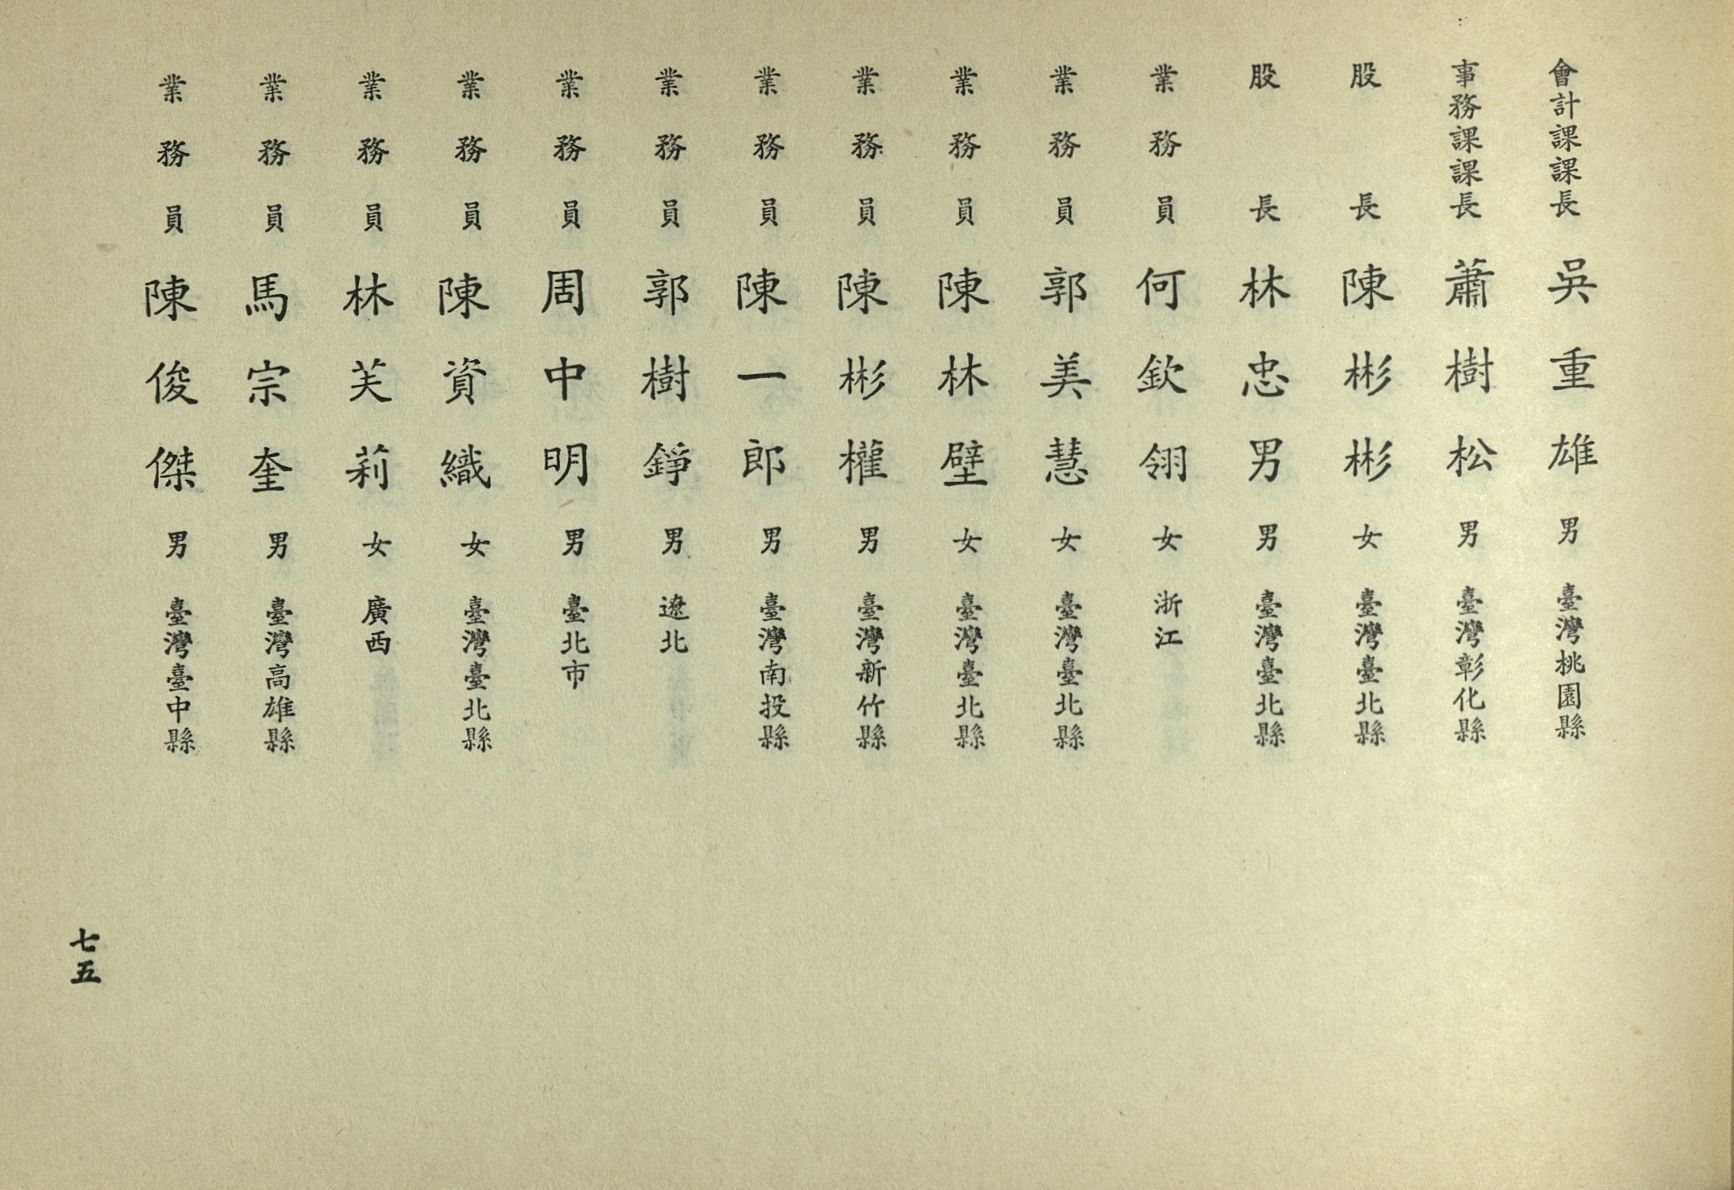 會計課課長 吳重雄 男 臺灣桃園縣
事務課課長 蕭樹松 男 臺灣彰化縣
股長 陳彬彬 女 臺灣臺北縣
股長 林忠男 男 臺灣臺北縣
業務員 何欽翎 女 浙江
業務員 郭美慧 女 臺灣臺北縣
業務員 陳林壁 女 臺灣臺北縣
業務員 陳彬權 男 臺灣新竹縣
業務員 陳一郎 男 臺灣南投縣
業務員 郭樹錚 男 遼北
業務員 周中明 男 臺北市
業務員 陳資織 女 臺灣臺北縣
業務員 林芙莉 女 廣西
業務員 馬宗奎 男 臺灣高雄縣
業務員 陳俊傑 男 臺灣臺中縣
七五